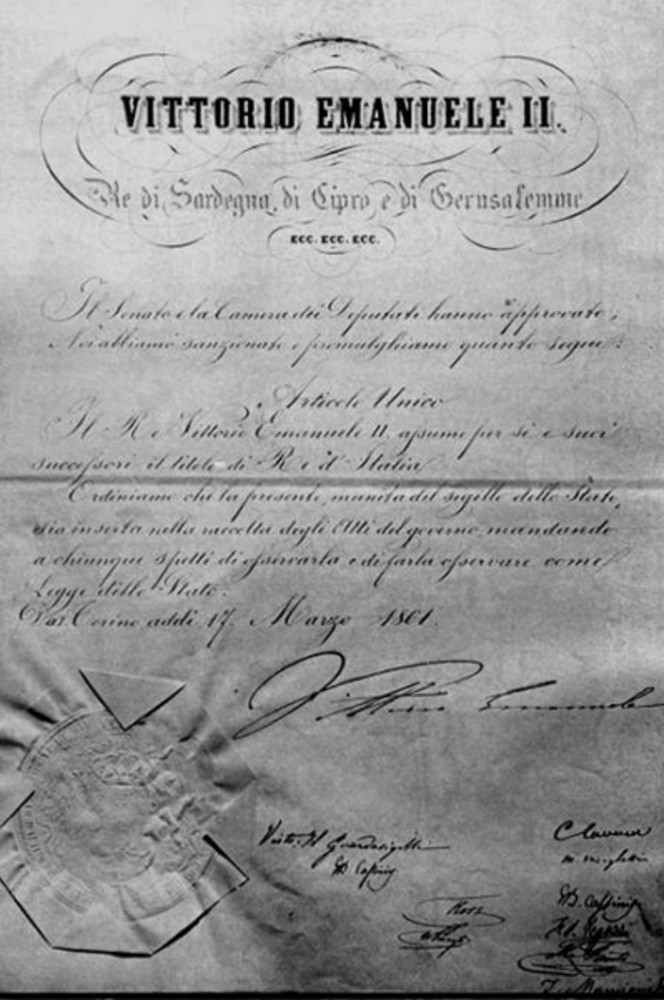 VITTORIO EMANUELE II.
Re di Sardegna, di Cipro e di Gerusalemme
ECC. ECC. ECC.
Il Senato e la Camera dei Deputati hanno approvato;
Noi abbiamo sanzionato e promulghiamo quanto segue:
Articolo Unico
Il Re Vittorio Emanuele II assume per sè e suoi
successori il titolo di Re d'Italia
Ordiniamo che la presente, munita del sigillo dello Stato,
sia inserta nella raccolta degli Atti del governo, mandando
a chiunque spetti di osservarla e di farla osservare come
Legge dello Stato.
Dat. Torino addì 17. Marzo 1861.
Vittorio Emanuele
Visto: Il Guardasigilli
C Cavour
M. Minghetti